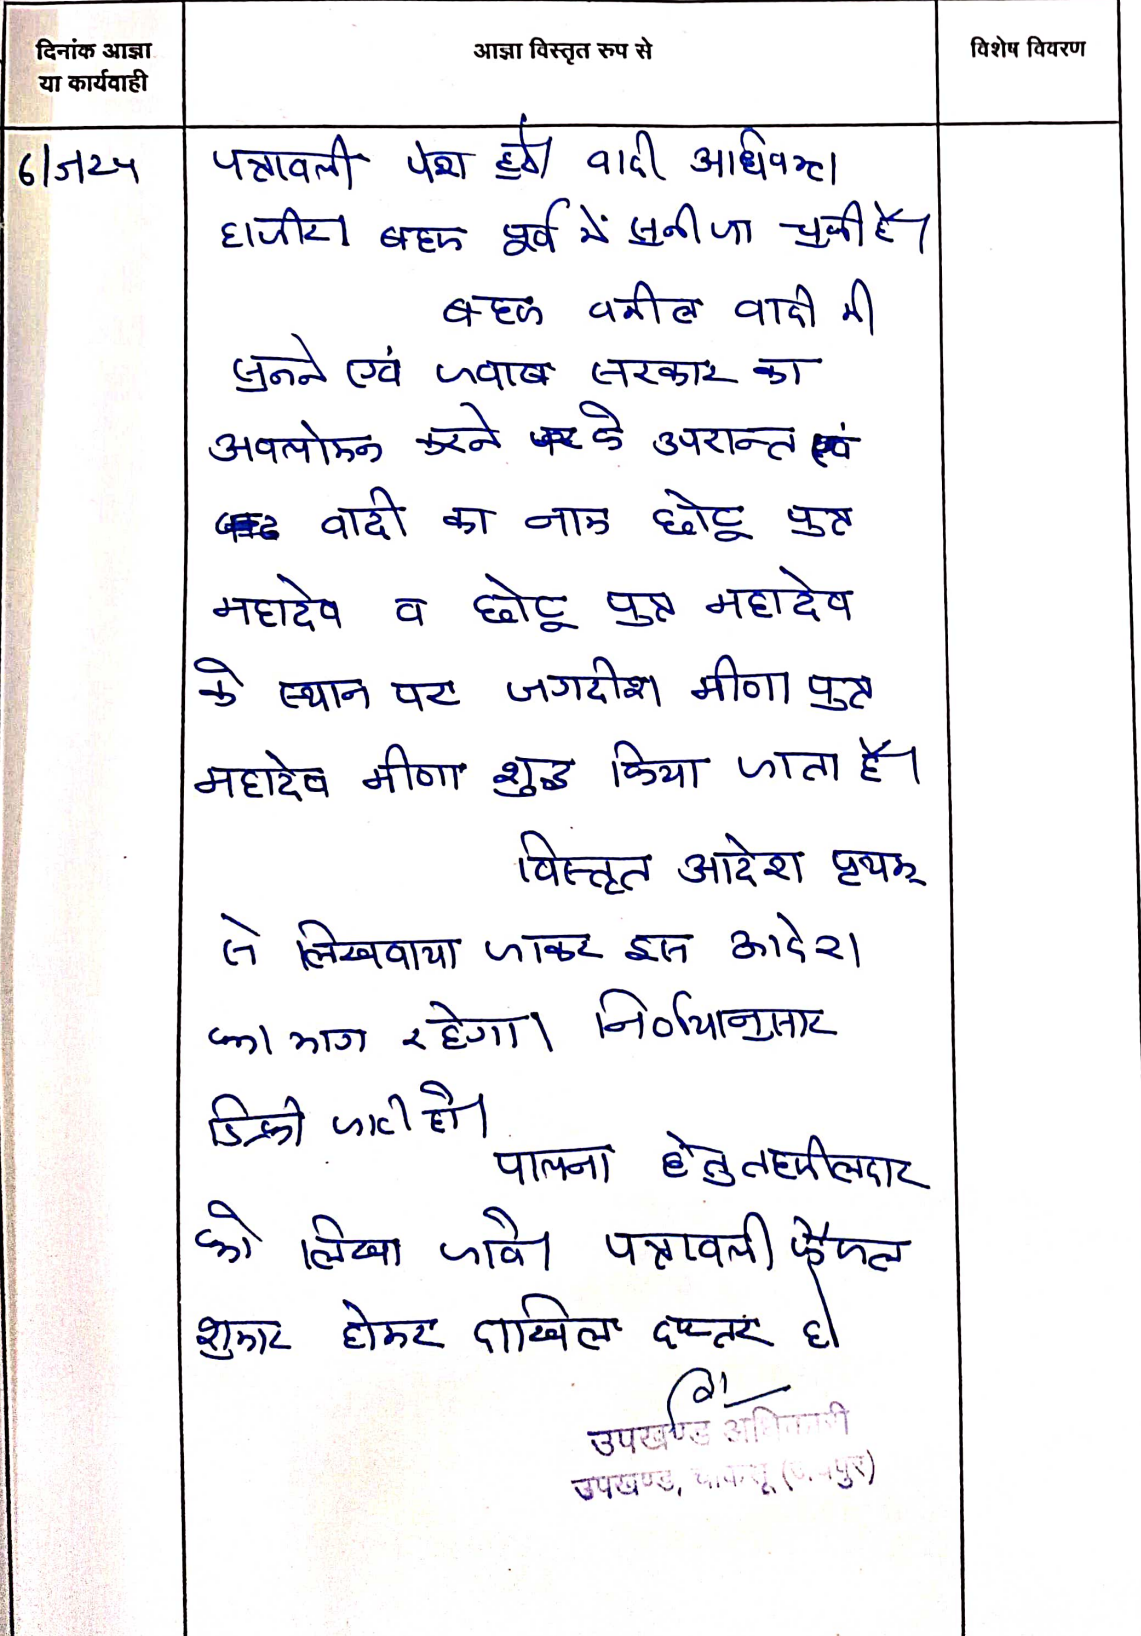 दिनांक आज्ञा
या कार्यवाही
आज्ञा विस्तृत रुप से
विशेष विवरण
पत्रावली पेश हुई। वादी अधिवक्ता
हाजीर। बहस पूर्व में सुनी जा चुकी है।
बहस वकील वादी की
सुनने एवं जवाब सरकार का
अवलोकन करने के उपरान्त एवं
वादी का नाम छोटू पुत्र
महादेव व छोटू पुत्र महादेव
के स्थान पर जगदीश मीणा पुत्र
महादेव मीणा शुद्ध किया जाता है।
विस्तृत आदेश पृथक
से लिखवाया जाकर इस आदेश
का भाग रहेगा। निर्णयानुसार
डिक्री जारी हो।
पालना हेतु तहसीलदार
को लिखा जावे। पत्रावली फैसल
शुमार होकर दाखिल दफ्तर हो
उपखण्ड अधिकारी
उपखण्ड, चाकसू (जयपुर)